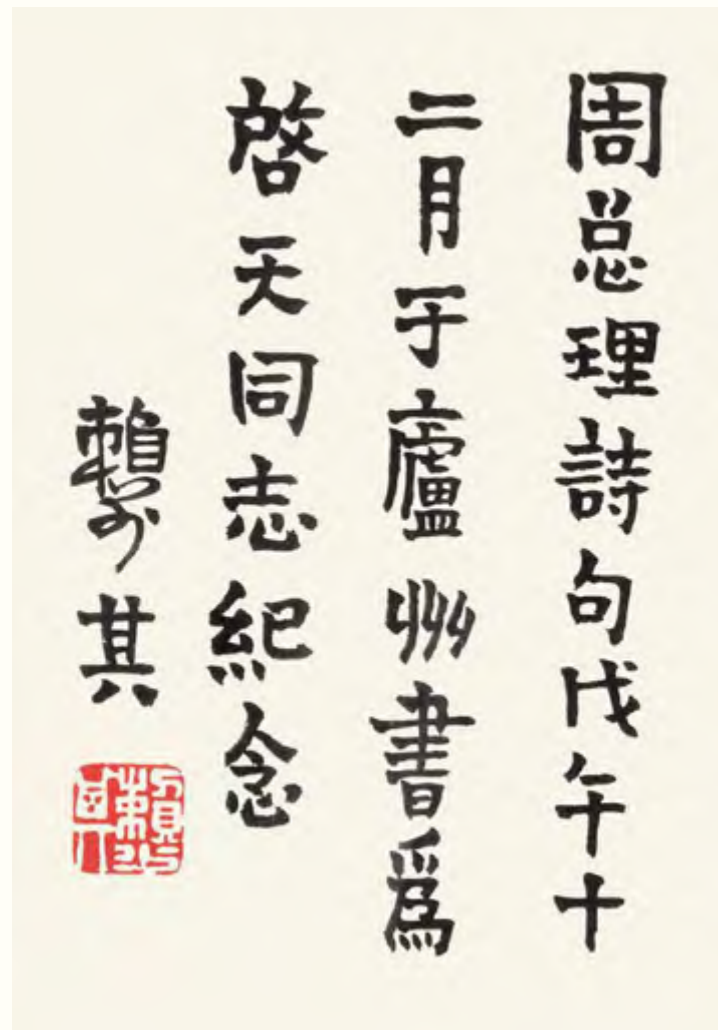 周总理詩句戊午十
二月于廬州書爲
啓天同志紀念
賴少其